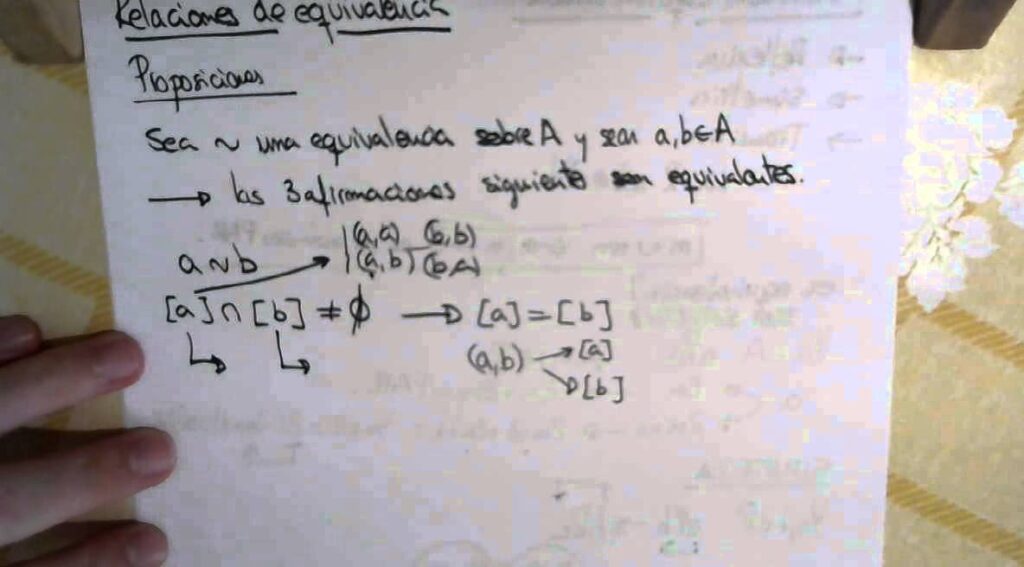 Relaciones de equivalencia
Proposiciones
Sea ~ una equivalencia sobre A y sean a,b∈A
→ las 3 afirmaciones siguiente son equivalentes.
(a,a) (b,b)
a~b → (a,b) (b,a)
[a]∩[b]≠∅ → [a]=[b]
(a,b) → [a]
→ [b]